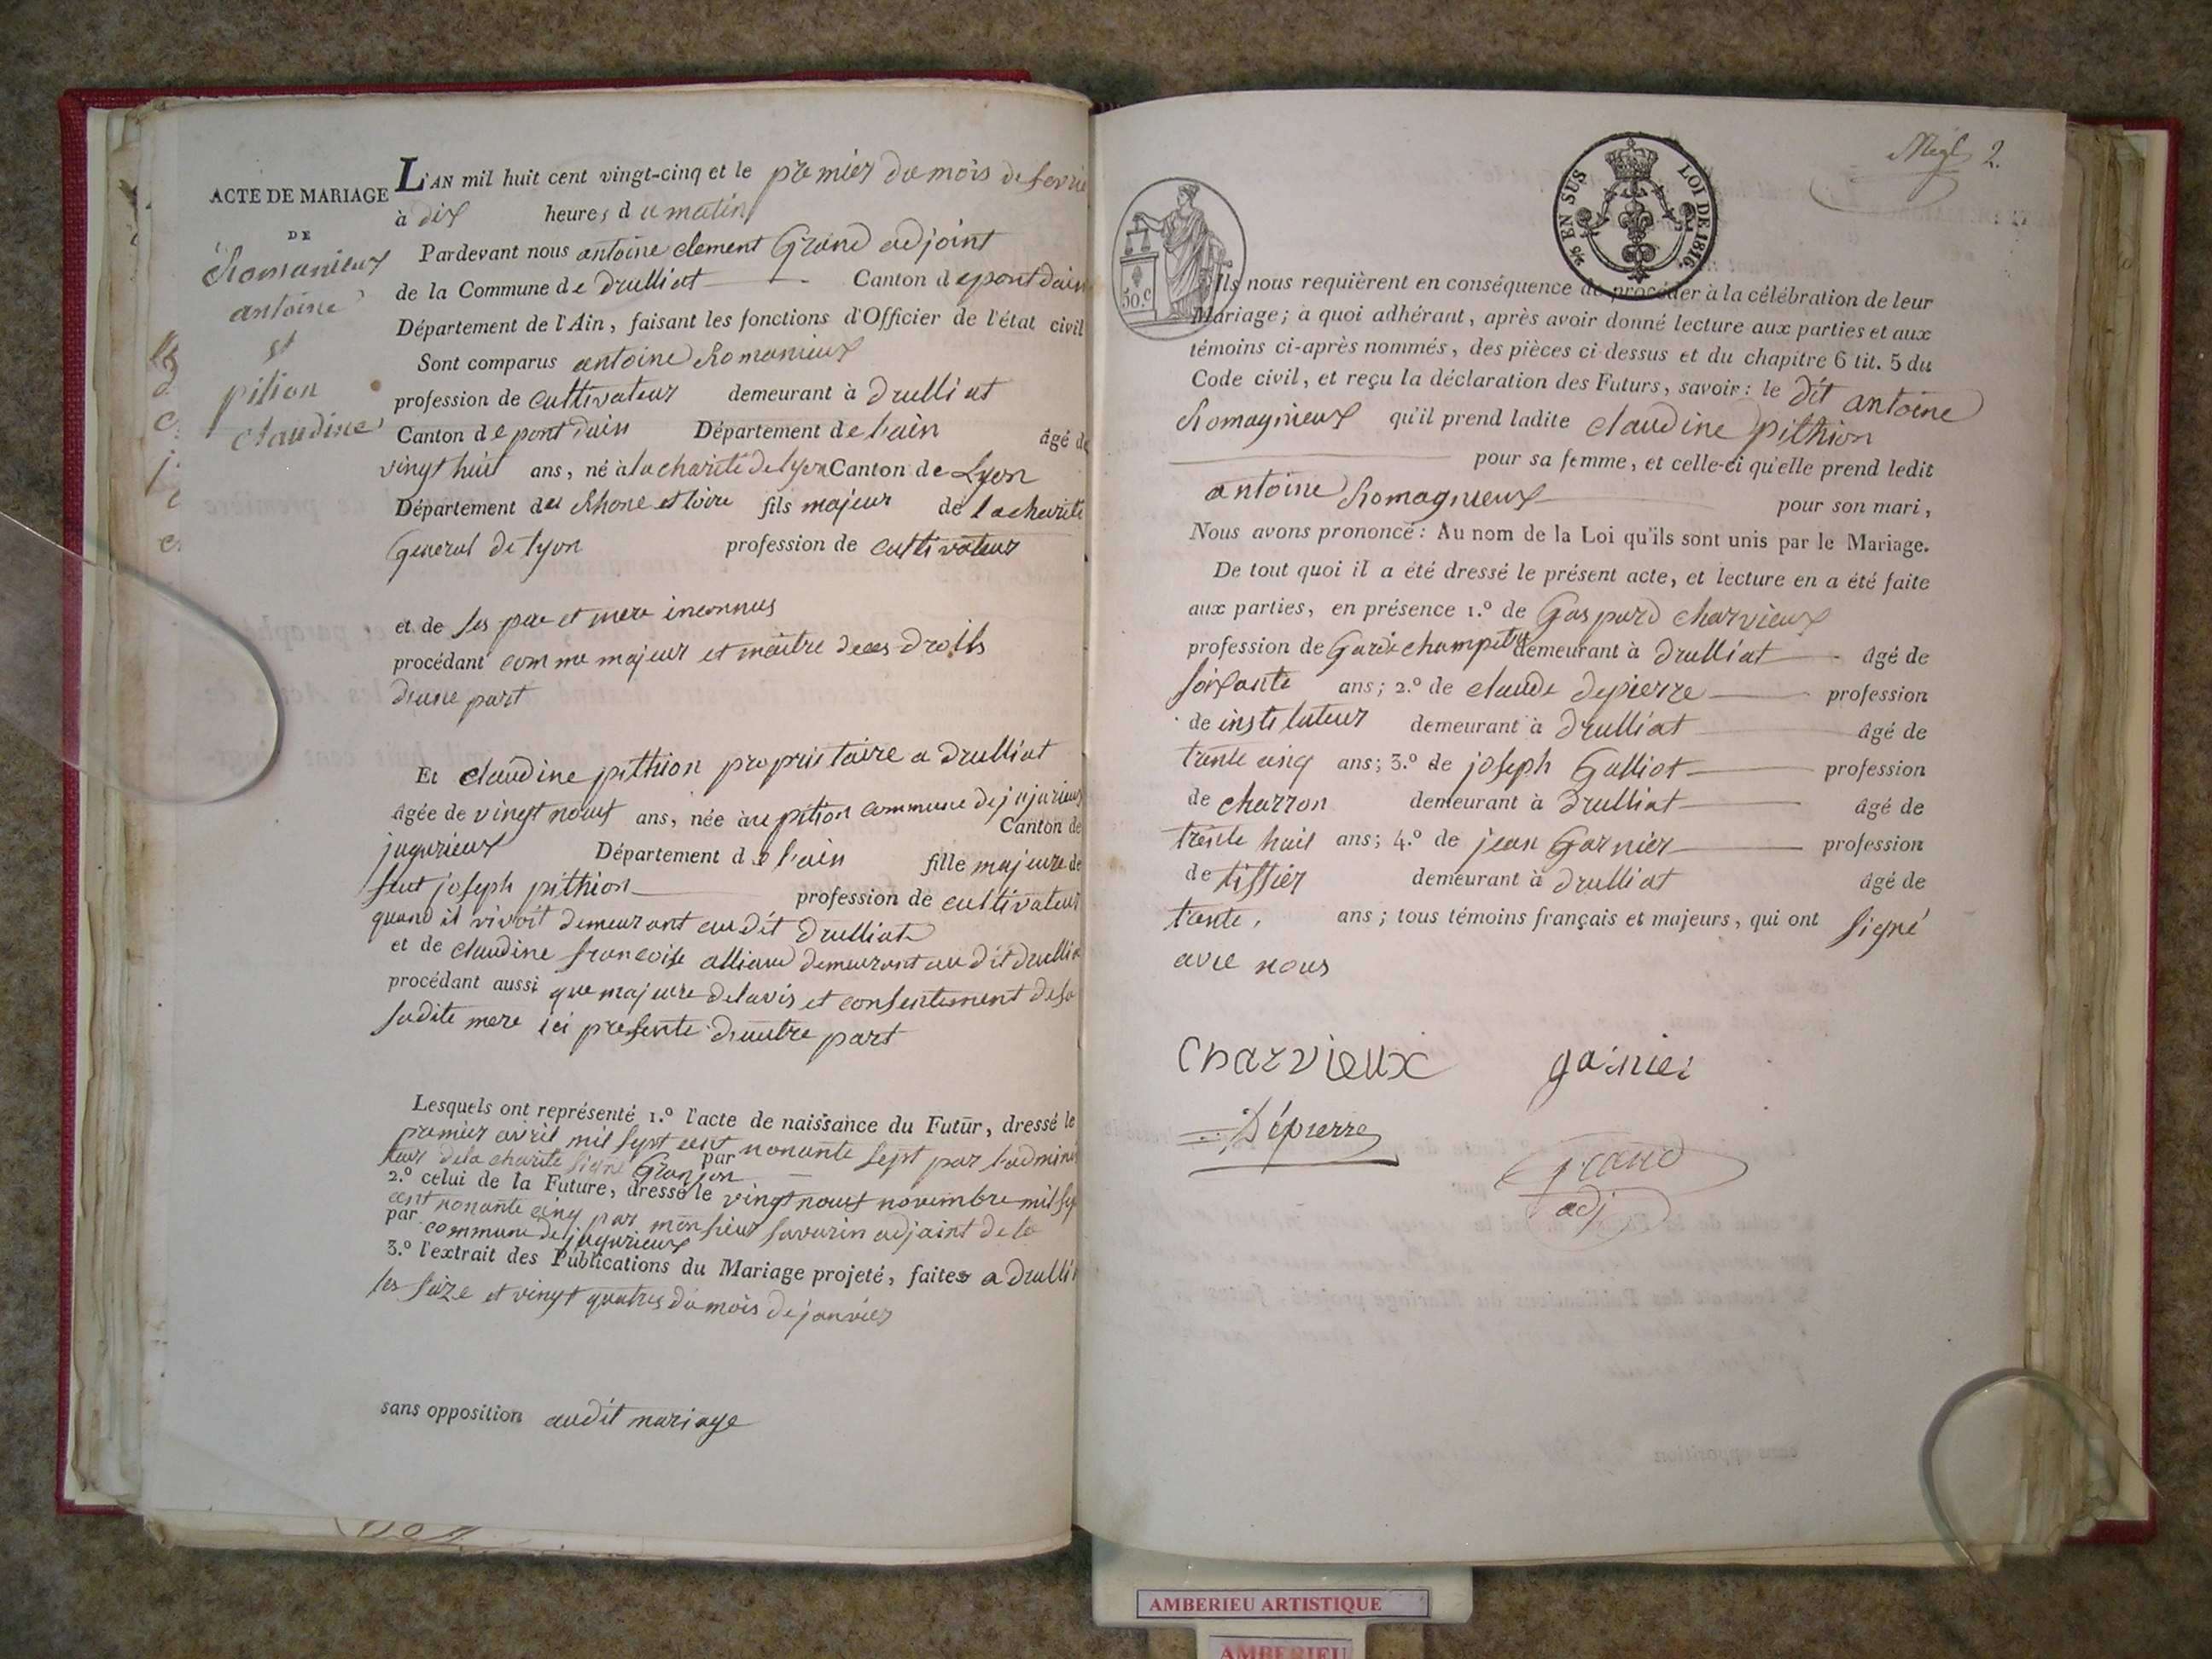 ACTE DE MARIAGE
DE
Romanieux
antoine
et
pition
claudine
L'AN mil huit cent vingt-cinq et le premier du mois de fevrie
à dix heures du matin
Pardevant nous antoine clement Grand adjoint
de la Commune de Drulliat Canton de pont dain
Département de l'Ain, faisant les fonctions d'Officier de l'état civil
Sont comparus antoine Romanieux
profession de cultivateur demeurant à Drulliat
Canton de pont Dain Département de lain âgé de
vingt huit ans, né à la charité de lyon Canton de Lyon
Département du Rhone et loire fils majeur de la charité
General de lyon profession de cultivateur
et de ses pere et mere inconnus
procédant comme majeur et maitre de ses droits
dune part
Et claudine pithion proprietaire a Drulliat
âgée de vingt nouf ans, née à au pition commune de jujurieux
Canton de
jugurieux Département de l'ain fille majeure de
feut joseph pithion profession de cultivateur
quand il vivoit demeurant au dit Drulliat
et de claudine francoise alliaud demeurant au dit drullia
procédant aussi que majeure de lavis et consentement de sa
sudite mere ici presente dautre part
Lesquels ont représenté 1.º l'acte de naissance du Futur, dressé le
premier avril mil sept cent nonante sept par l'admini
par
teur de la charité signé Granjon
2.º celui de la Future, dressé le vingt nouf novembre mil sep
cent nonante cinq par monsieur savarin adjoint de la
par commune de jugurieux
3.º l'extrait des Publications du Mariage projeté, faites a Drulli
les saize et vingt quatres du mois de janvier
sans opposition audit mariage
Megl 2.
5/c EN SUS LOI DE 1816.
50.c
Ils nous requièrent en conséquence de procéder à la célébration de leur
Mariage; à quoi adhérant, après avoir donné lecture aux parties et aux
témoins ci-après nommés, des pièces ci-dessus et du chapitre 6 tit. 5 du
Code civil, et reçu la déclaration des Futurs, savoir: le dit antoine
Romagnieux qu'il prend ladite claudine pithion
pour sa femme, et celle-ci qu'elle prend ledit
antoine Romagnieux pour son mari,
Nous avons prononcé: Au nom de la Loi qu'ils sont unis par le Mariage.
De tout quoi il a été dressé le présent acte, et lecture en a été faite
aux parties, en présence 1.º de Gaspard charvieux
profession de Garde champetre demeurant à Drulliat âgé de
soixante ans; 2.º de claude depierre profession
de instituteur demeurant à Drulliat âgé de
trante cinq ans; 3.º de joseph Galliot profession
de charron demeurant à Drulliat âgé de
trente huit ans; 4.º de jean Garnier profession
de tissier demeurant à Drulliat âgé de
trante, ans; tous témoins français et majeurs, qui ont signé
avec nous
Charvieux garnier
Dépierre
Grand
adj
AMBERIEU ARTISTIQUE
AMBERIEU